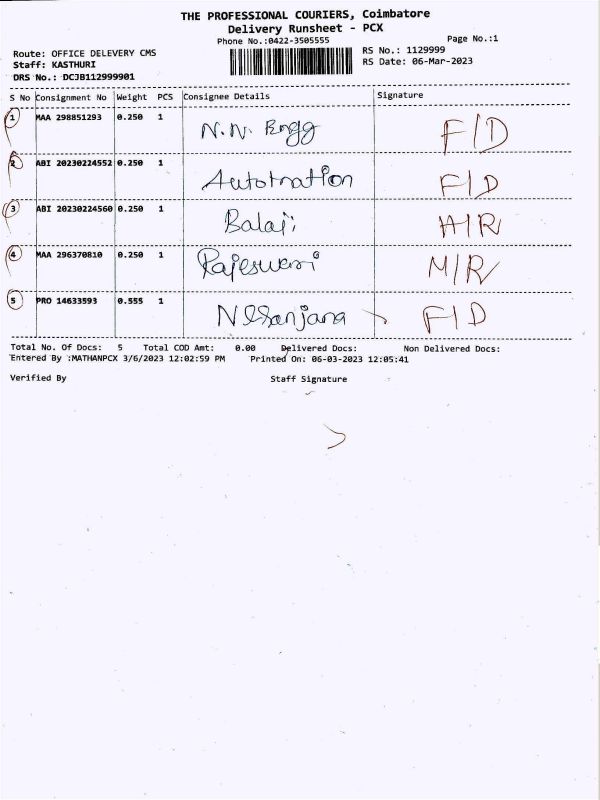 THE PROFESSIONAL COURIERS, Coimbatore
Delivery Runsheet - PCX
Phone No.:0422-3505555
Page No.:1
Route: OFFICE DELEVERY CMS
RS No.: 1129999
Staff: KASTHURI
RS Date: 06-Mar-2023
DRS No.: DCJB112999901
S No Consignment No Weight PCS Consignee Details Signature
1 MAA 298851293 0.250 1 N.N. Engg F/D
2 ABI 20230224552 0.250 1 Automation F/D
3 ABI 20230224560 0.250 1 Balaji H/R
4 MAA 296370810 0.250 1 Rajeswari M/R
5 PRO 14633593 0.555 1 Sanjana F/D
Total No. Of Docs: 5 Total COD Amt: 0.00 Delivered Docs: Non Delivered Docs:
Entered By :MATHANPCX 3/6/2023 12:02:59 PM Printed On: 06-03-2023 12:05:41
Verified By Staff Signature